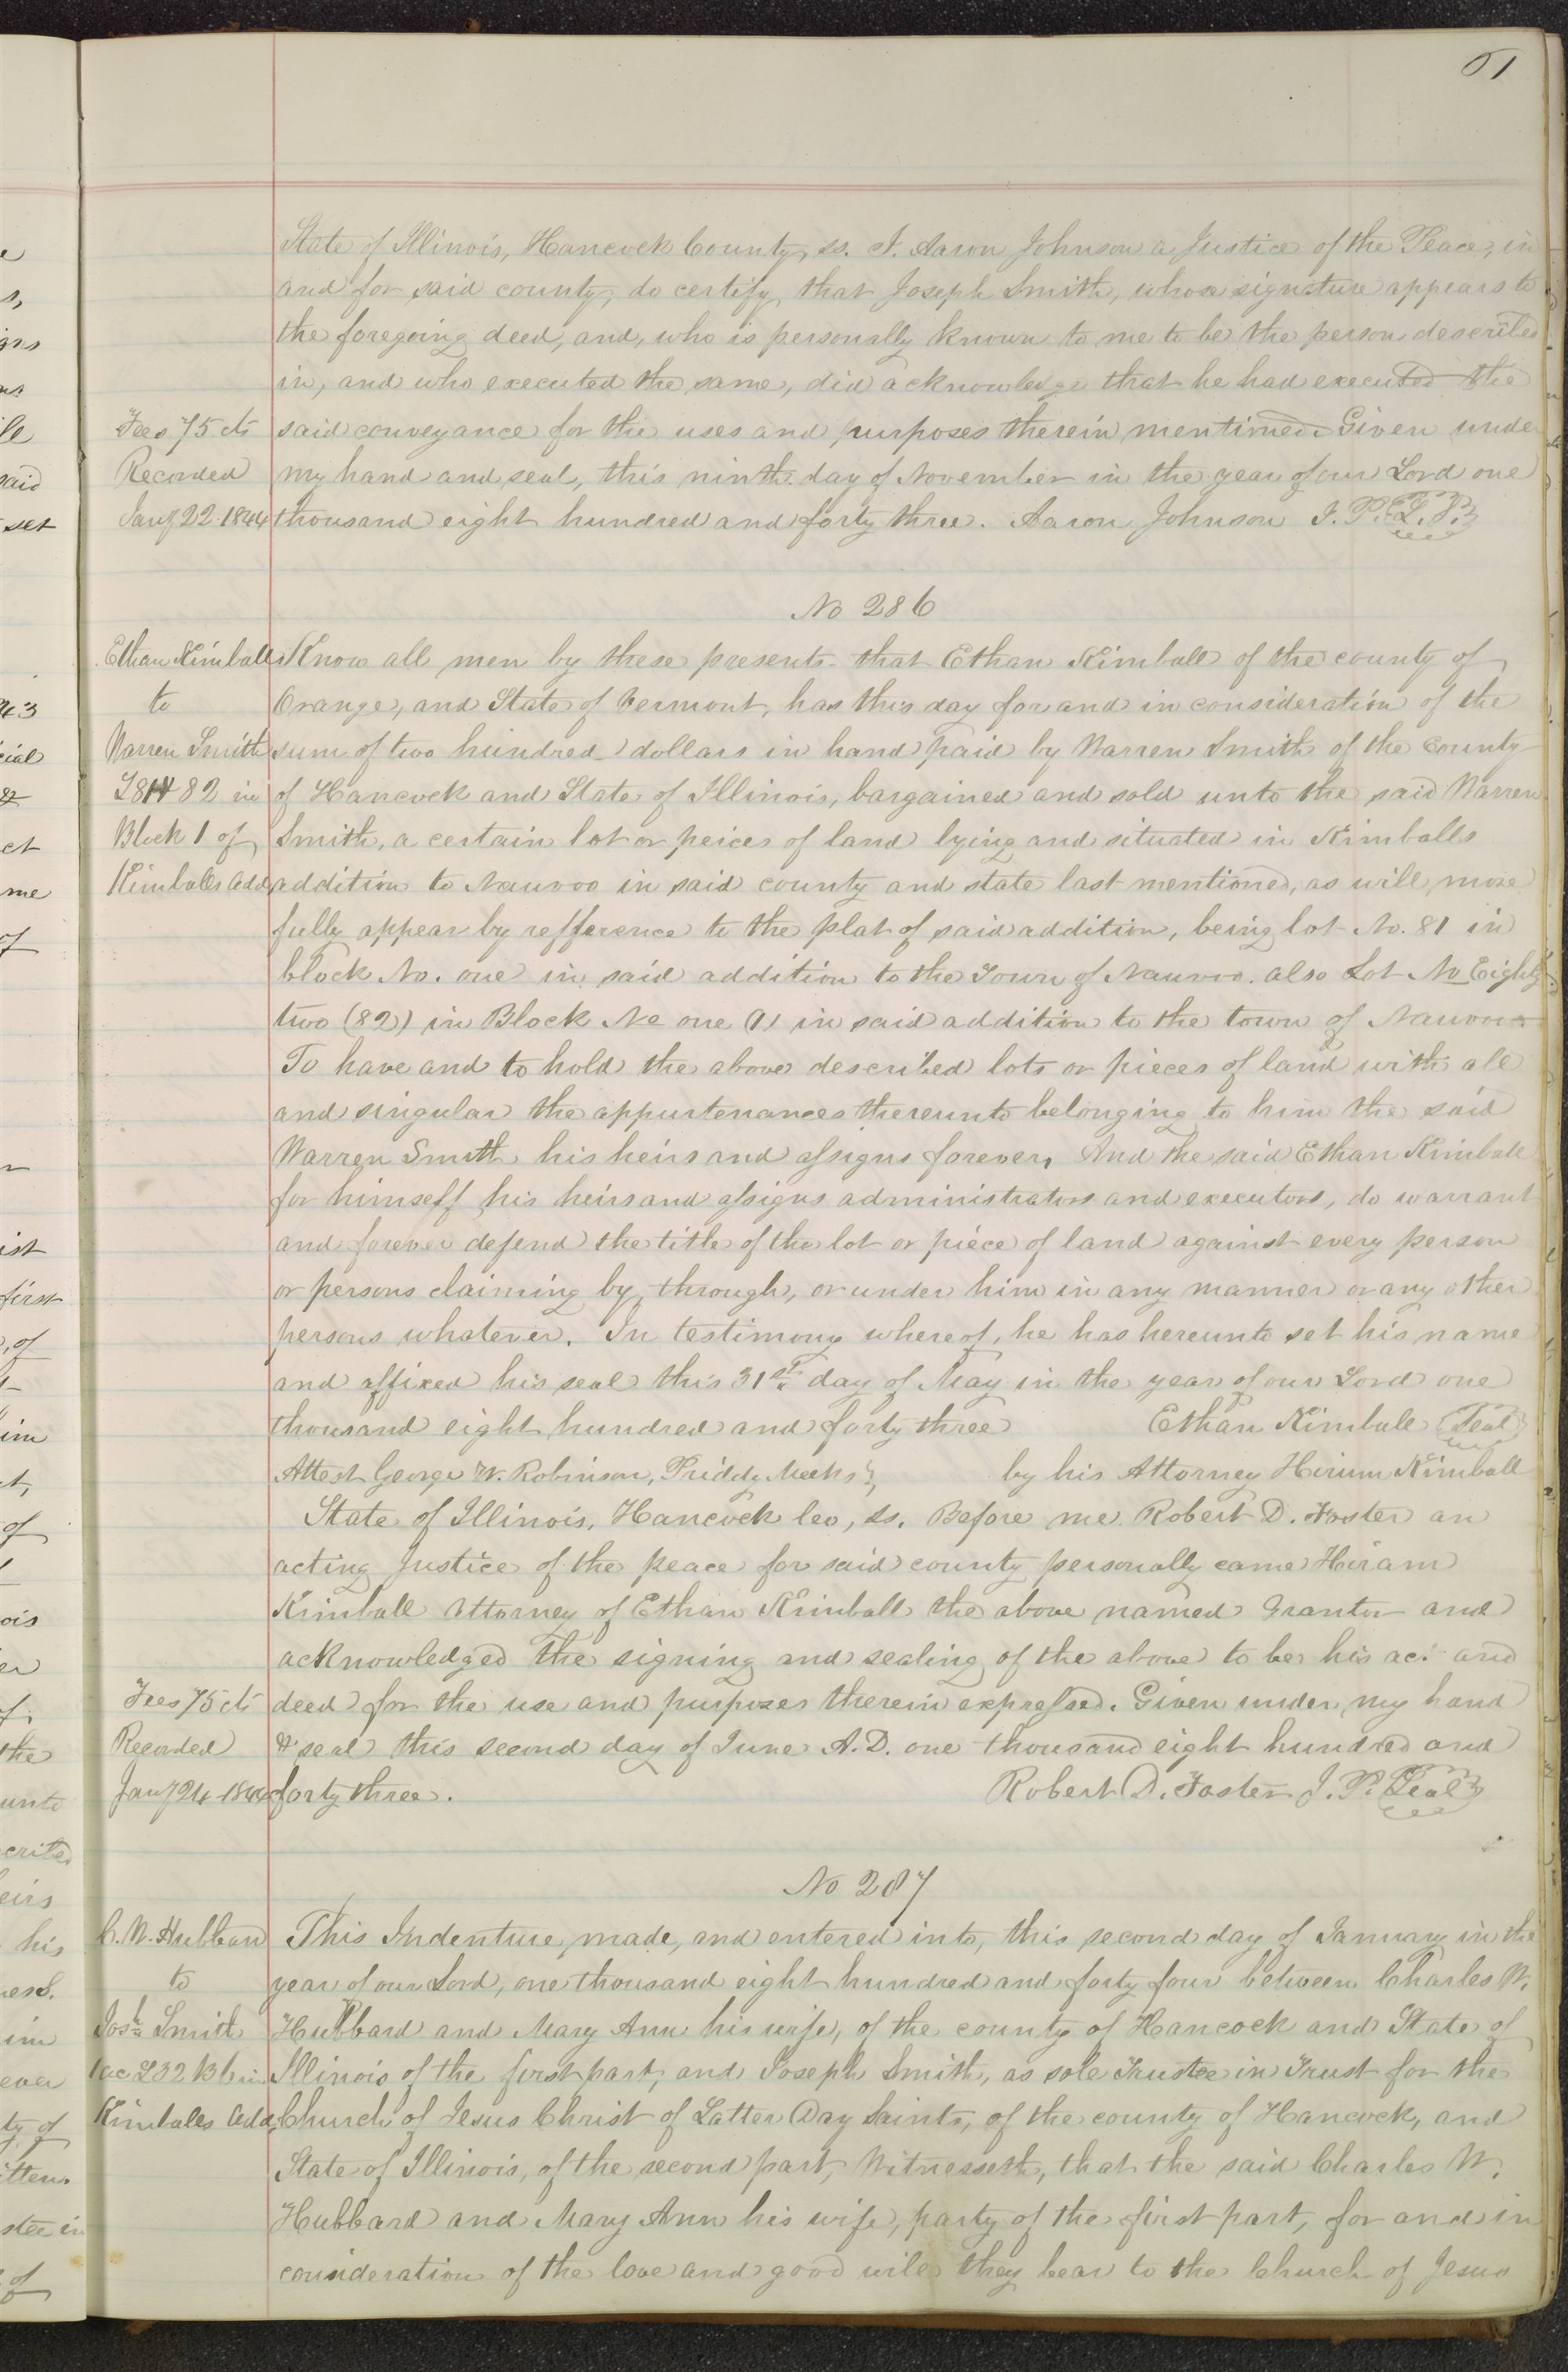 61
State of Illinois, Hancock County, ss. I. Aaron Johnson a Justice of the Peace, in
and for said county, do certify that Joseph Smith, whose signature appears to
the foregoing deed, and, who is personally known to me to be the person described
in, and who executed the same, did acknowledge that he had executed the
Fees 75 cts said conveyance for the uses and purposes therein mentioned. Given under
Recorded my hand and seal, this ninth day of November in the year of our Lord one
Jany 22 1844 thousand eight hundred and forty three. Aaron Johnson J. P. L. S.
No 286
Ethan Kimball Know all men by these presents that Ethan Kimball of the county of
to Orange, and State of Vermont, has this day for and in consideration of the
Warren Smith sum of two hundred dollars in hand paid by Warren Smith of the County
L81 & 82 in of Hancock and State of Illinois, bargained and sold unto the said Warren
Block 1 of Smith, a certain lot or peices of land lying and situated in Kimballs
Kimballs Add addition to Nauvoo in said county and state last mentioned, as will more
fully appear by refference to the plat of said addition, being lot No. 81 in
block No. one in said addition to the Town of Nauvoo. also Lot No Eighty
two (82) in Block No one (1) in said addition to the town of Nauvoo
To have and to hold the above described lots or pieces of land with all
and singular the appurtenances thereunto belonging to him the said
Warren Smith his heirs and assigns forever, And the said Ethan Kimball
for himself his heirs and assigns administrators and executors, do warrant
and forever defend the title of the lot or piece of land against every person
or persons claiming by, through, or under him in any manner or any other
persons whatever. In testimony whereof, he has hereunto set his name
and affixed his seal this 31st day of May in the year of our Lord one
thousand eight hundred and forty three Ethan Kimball Seal
Attest George W. Robinson, Priddy Meeks by his Attorney Hirum Kimball
State of Illinois, Hancock Co, ss. Before me Robert D. Foster an
acting Justice of the peace for said county personally came Hiram
Kimball Attorney of Ethan Kimball the above named Grantor and
acknowledged the signing and sealing of the above to be his act and
Fees 75 cts deed for the use and purposes therein expressed. Given under my hand
Recorded & seal this second day of June A.D. one thousand eight hundred and
Jany 24 1844 forty three. Robert D. Foster J. P. Seal
No 287
C. W. Hubbard This Indenture, made, and entered into, this second day of January in the
to year of our Lord, one thousand eight hundred and forty four between Charles W.
Josh Smith Hubbard and Mary Ann his wife, of the county of Hancock and State of
1 ac L32 B6 in Illinois of the first part, and Joseph Smith, as sole Trustee in Trust for the
Kimballs Add, Church of Jesus Christ of Latter Day Saints, of the county of Hancock, and
State of Illinois, of the second part, Witnesseth, that the said Charles W.
Hubbard and Mary Ann his wife, party of the first part, for and in
consideration of the love and good will they bear to the Church of Jesus